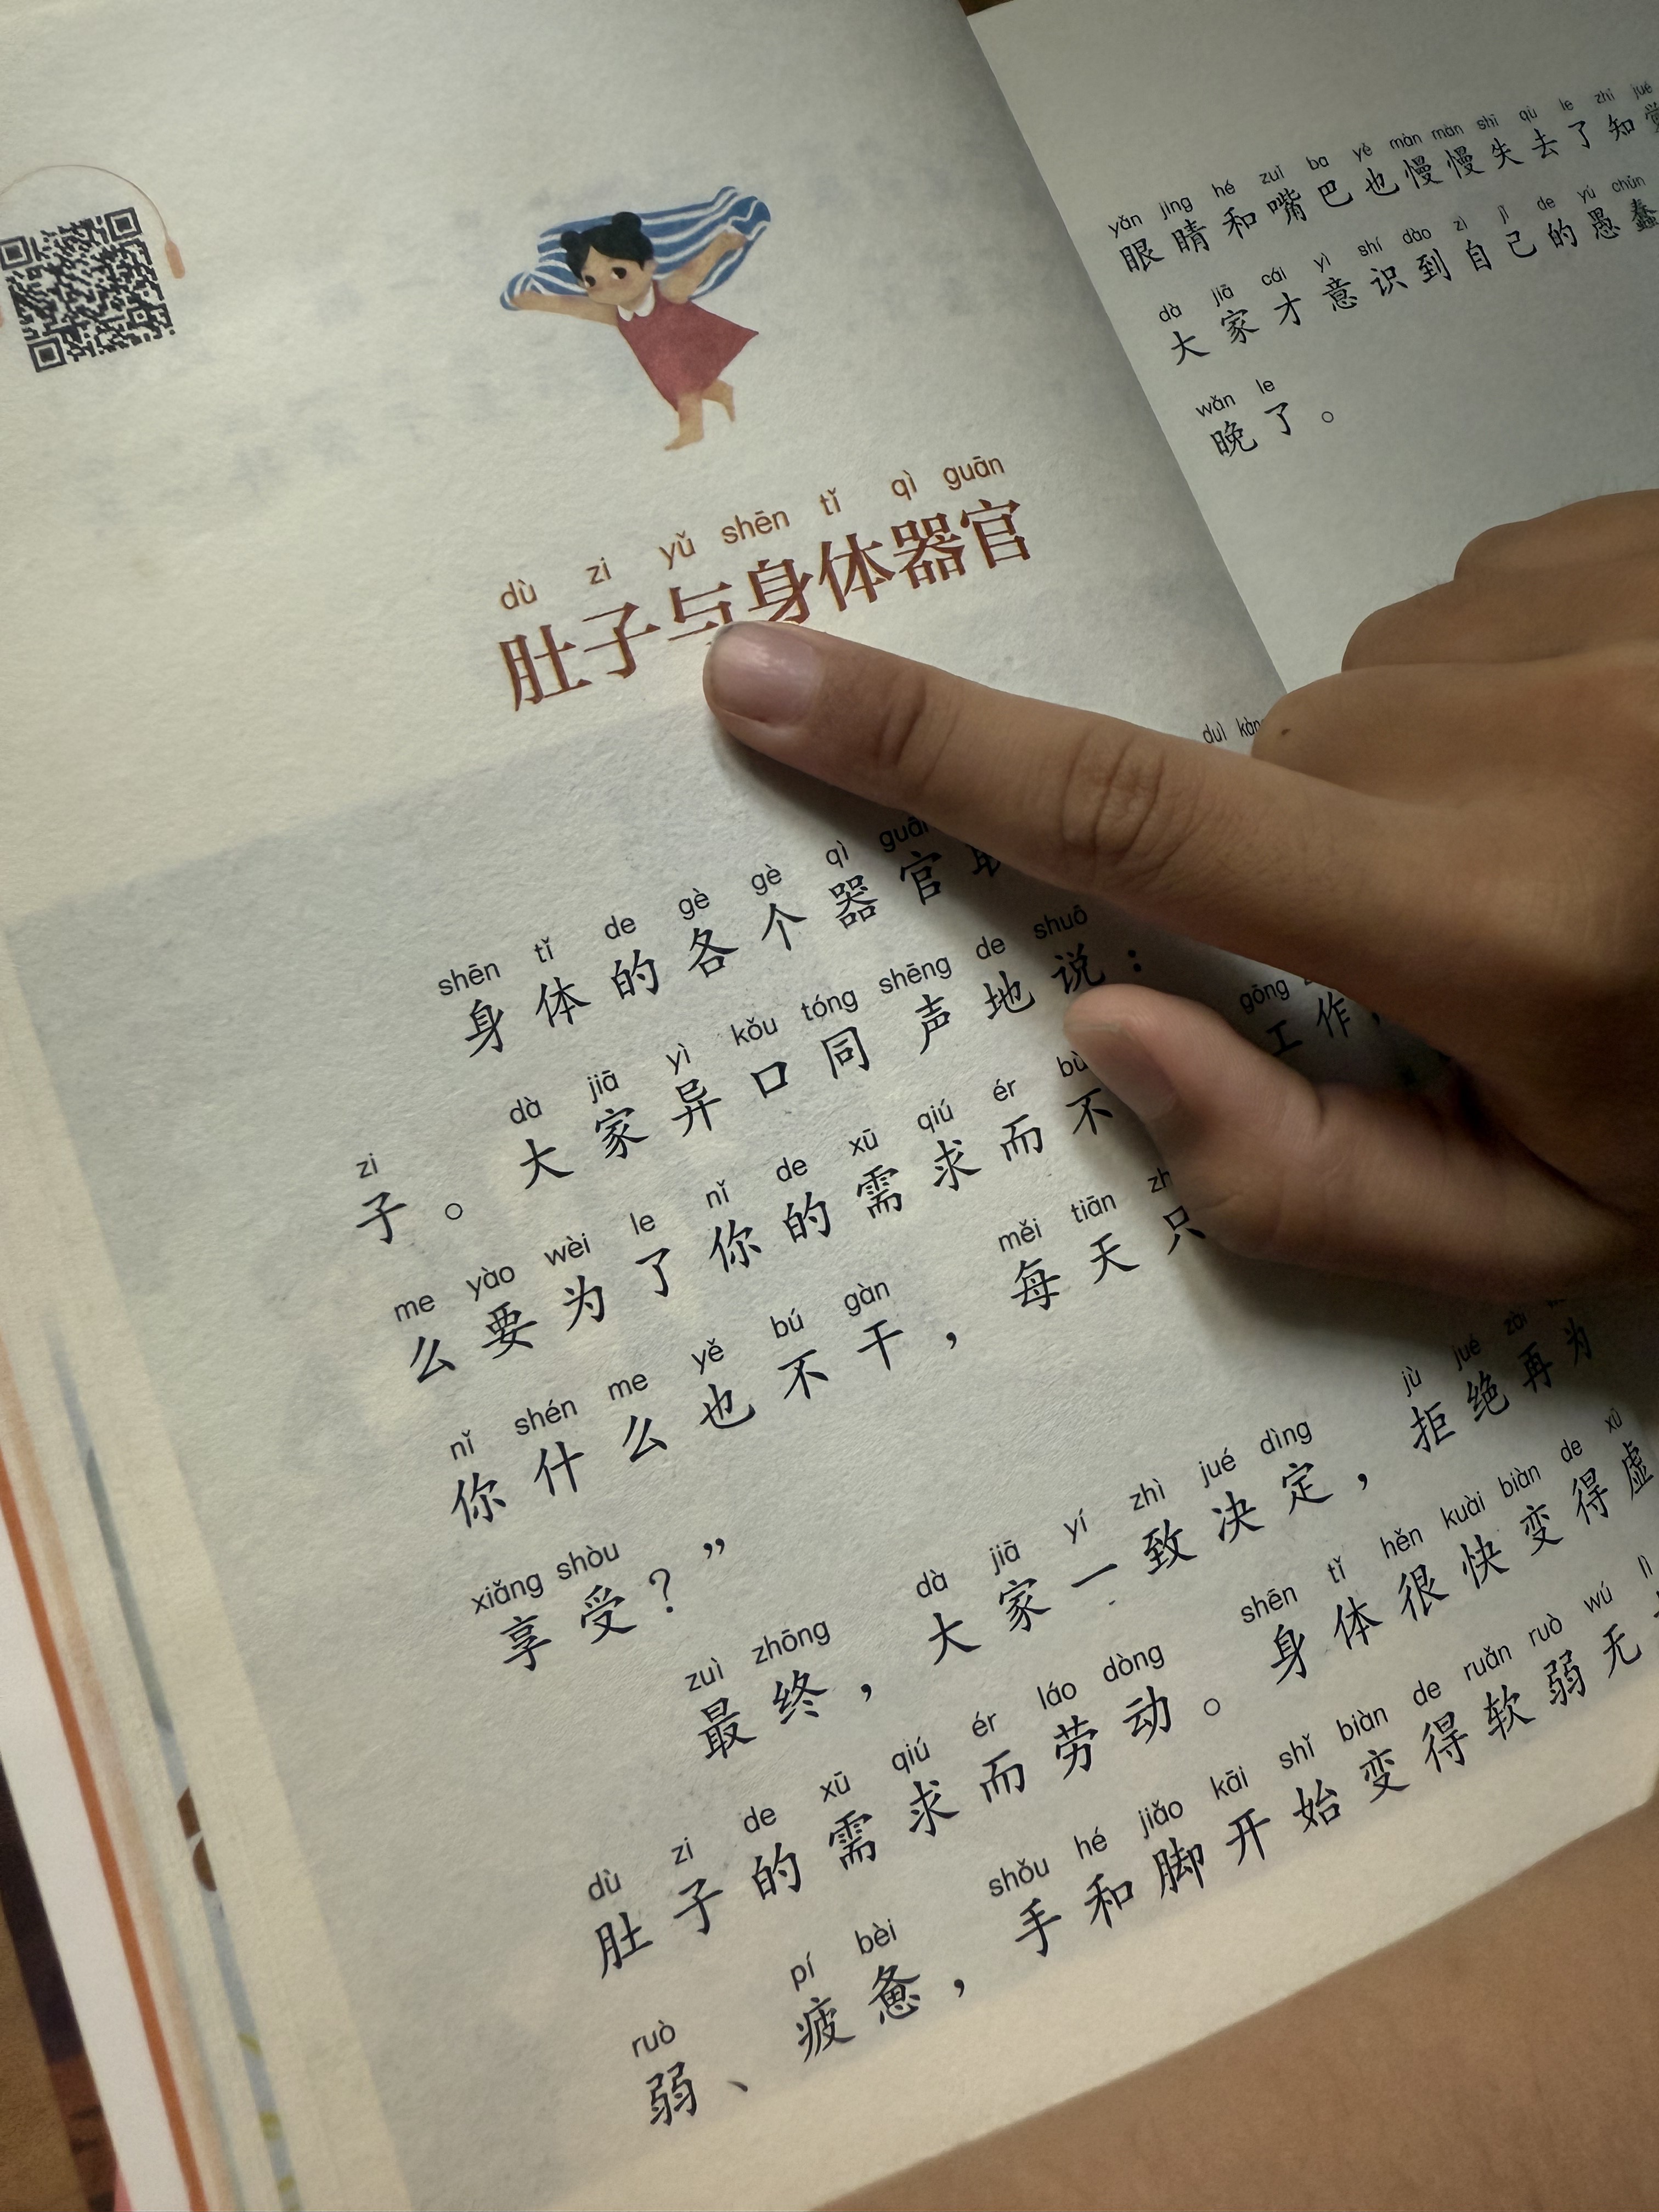 dù zi yǔ shēn tǐ qì guān
肚子与身体器官
shēn tǐ de gè gè qì guān
身体的各个器官
zi dà jiā yì kǒu tóng shēng de shuō
子。大家异口同声地说：
me yào wèi le nǐ de xū qiú ér bù
么要为了你的需求而不
gōng
工作，
nǐ shén me yě bú gàn měi tiān
你什么也不干，每天只
xiǎng shòu
享受？”
zuì zhōng dà jiā yí zhì jué dìng jù jué zài
最终，大家一致决定，拒绝再为
dù zi de xū qiú ér láo dòng shēn tǐ hěn kuài biàn de xū
肚子的需求而劳动。身体很快变得虚
ruò pí bèi shǒu hé jiǎo kāi shǐ biàn de ruǎn ruò wú lì
弱、疲惫，手和脚开始变得软弱无
duì kàng
yǎn jing hé zuǐ ba yě màn màn shī qù le zhī jué
眼睛和嘴巴也慢慢失去了知觉
dà jiā cái yì shí dào zì jǐ de yú chǔn
大家才意识到自己的愚蠢
wǎn le
晚了。